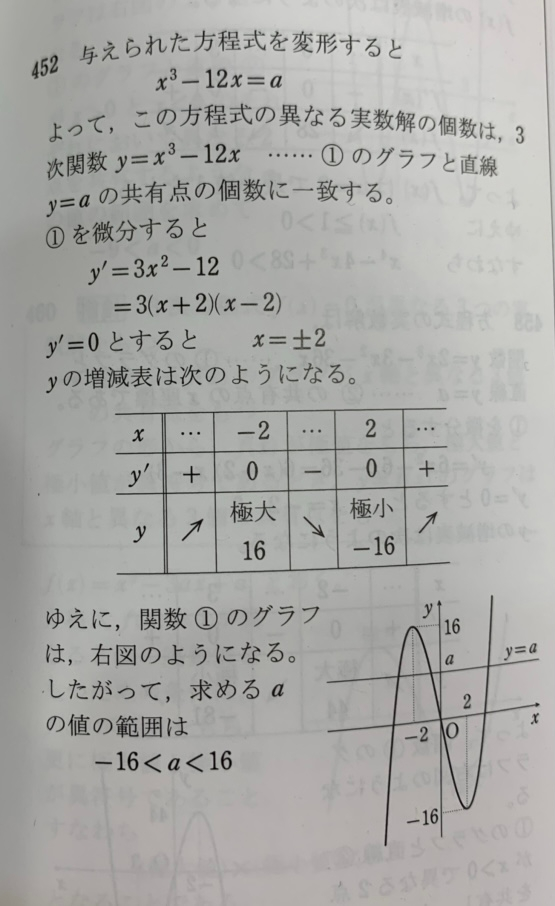 452 与えられた方程式を変形すると
x³−12x=a
よって，この方程式の異なる実数解の個数は，3
次関数 y=x³−12x ‥‥‥ ① のグラフと直線
y=a の共有点の個数に一致する。
① を微分すると
y′=3x²−12
=3(x+2)(x−2)
y′=0 とすると x=±2
yの増減表は次のようになる。
x … −2 … 2 …
y′ + 0 − 0 +
y ↗ 極大 ↘ 極小 ↗
16 −16
ゆえに，関数 ① のグラフ
は，右図のようになる。
したがって，求める a
の値の範囲は
−16<a<16
y
16
a
y=a
2
x
−2
O
−16